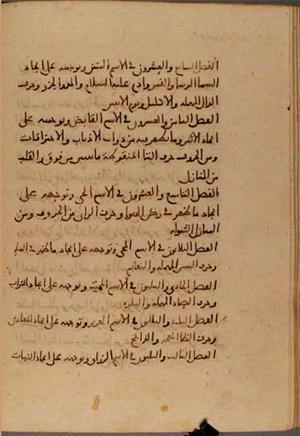 الفصل السابع والعشرون في الاسم المبين وتوجهه على ايجاد
السما الدنيا والقمر وادم عليه السلام والمد والجزر وحرف
الدال المهملة والاكليل ويوم الاثنين
الفصل الثامن والعشرون في الاسم القابض وتوجهه على
ايجاد الاثير وما يظهر فيه من ذوات الاذناب والاحتراقات
ومن الحروف حرف التا المعجمة باثنتين من فوق والقلب
من المنازل
الفصل التاسع والعشرون في الاسم الحي وتوجهه على
ايجاد ما ظهر في ركن الهوا وحرف الزاي من الحروف ومن
المنازل الشولة
الفصل الثلاثون في الاسم المحيي وتوجهه على ايجاد ما ظهر في الماء
وحرف السين المهملة والنعايم
الفصل الحادي والثلاثون في الاسم المميت وتوجهه على ايجاد التراب
وحرف الصاد المهملة والبلدة
الفصل الثاني والثلاثون في الاسم العزيز وتوجهه على ايجاد المعادن
وحرف الظا المعجمة والذابح
الفصل الثالث والثلاثون في الاسم الرزاق وتوجهه على ايجاد النبات